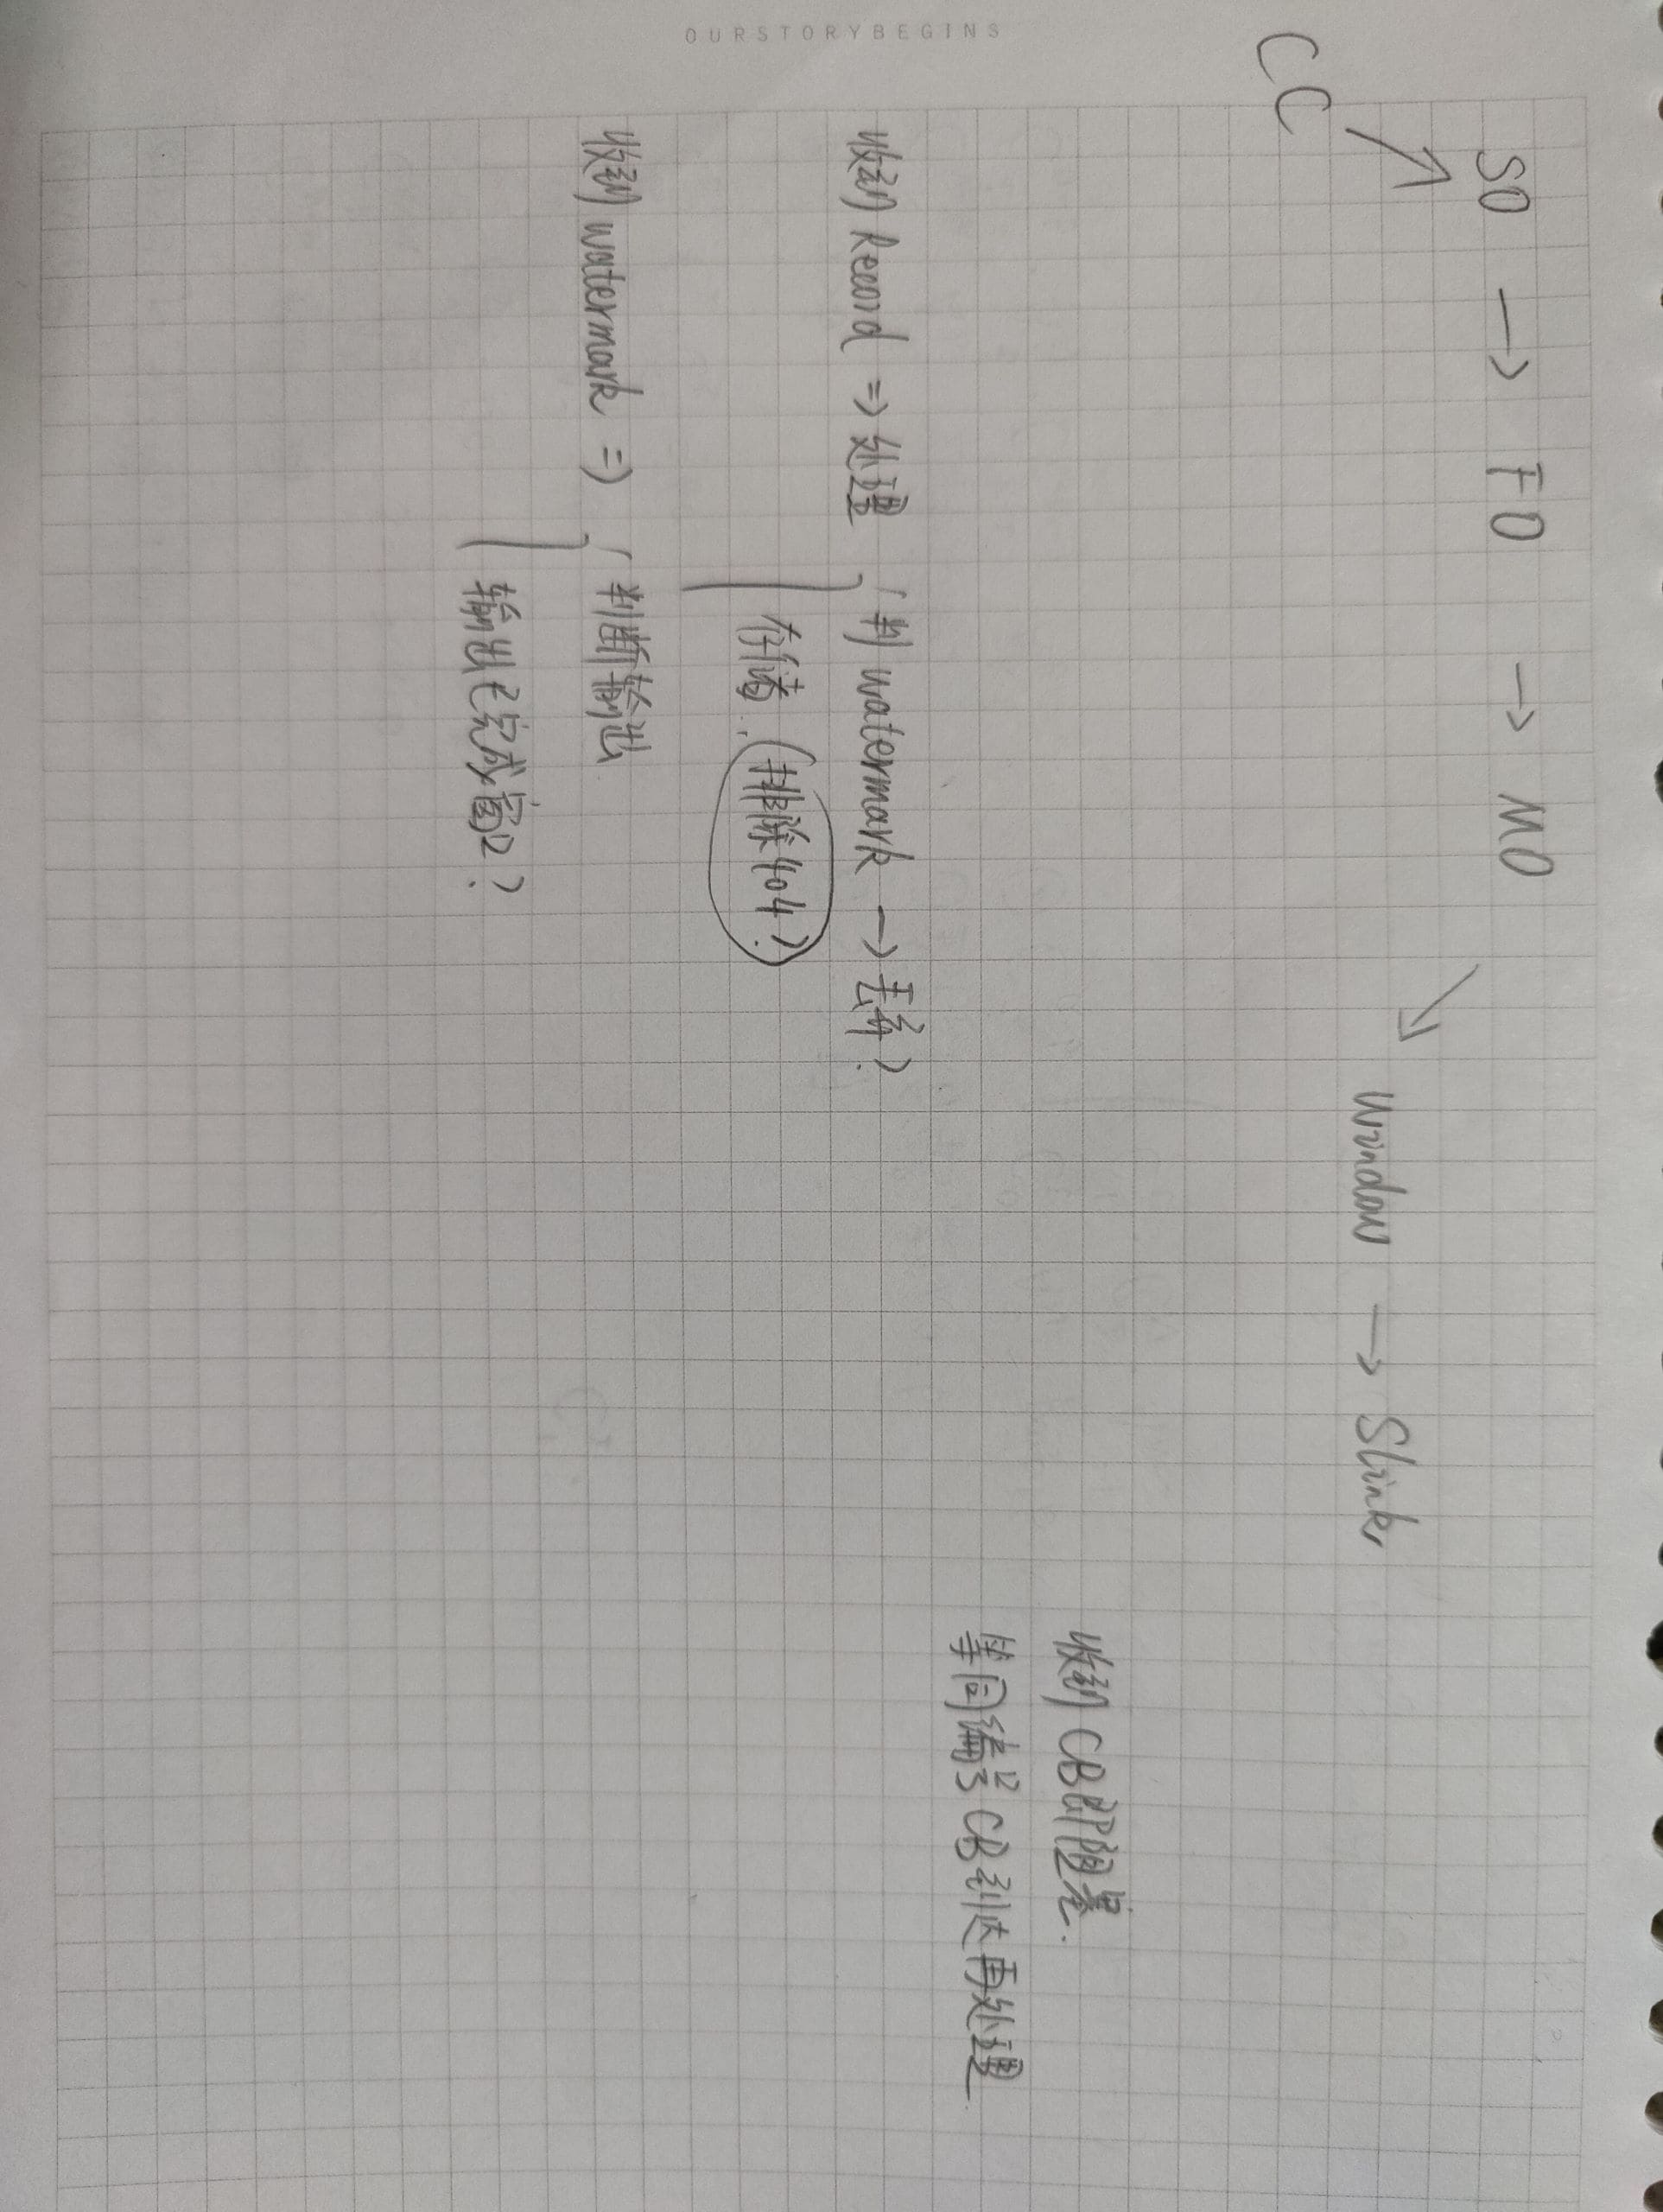 SO → FO → MO
CC
Window → Slink
收到 CB即阻塞.
等同编号CB到达再处理.
收到 Record => 处理 { 判 watermark → 丢弃?
存储. (排除404?)
收到 watermark => { 判断输出
输出已完成窗口?
OURSTORYBEGINS